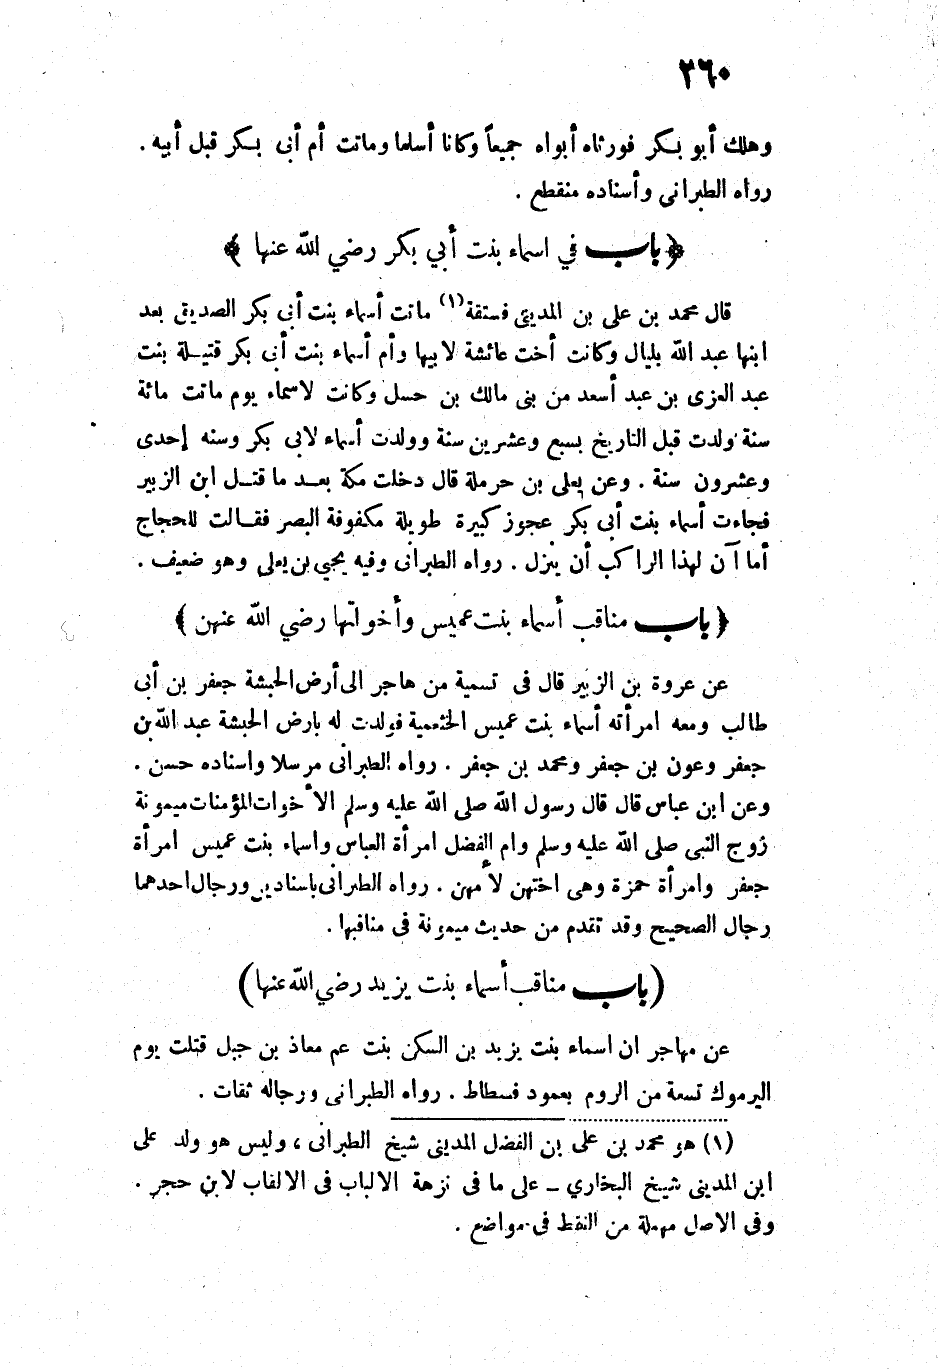 ٢٦٠
وهلك أبو بكر فورثاه أبواه جميعاً وكانا أسلما وماتت أم أبى بكر قبل أبيه .
رواه الطبرانى وأسناده منقطع .
﴿ باب في اسماء بنت أبي بكر رضي الله عنها ﴾
قال محمد بن على بن المدينى فستقة(١) ماتت أسماء بنت أبى بكر الصديق بعد
ابنها عبد الله بليال وكانت أخت عائشة لابيها وأم أسماء بنت أبى بكر قتيلة بنت
عبد العزى بن عبد أسعد من بنى مالك بن حسل وكانت لاسماء يوم ماتت مائة
سنة ولدت قبل التاريخ بسبع وعشرين سنة وولدت أسماء لابى بكر وسنه إحدى
وعشرون سنة . وعن يعلى بن حرملة قال دخلت مكة بعد ما قتل ابن الزبير
فجاءت أسماء بنت أبى بكر عجوز كبيرة طويلة مكفوفة البصر فقالت للحجاج
أما آن لهذا الراكب أن ينزل . رواه الطبرانى وفيه يحيي بن يعلى وهو ضعيف .
﴿ باب مناقب أسماء بنت عميس وأخواتها رضي الله عنهن ﴾
عن عروة بن الزبير قال فى تسمية من هاجر الى أرض الحبشة جعفر بن أبى
طالب ومعه امرأته أسماء بنت عميس الخثعمية فولدت له بارض الحبشة عبد الله بن
جعفر وعون بن جعفر ومحمد بن جعفر . رواه الطبرانى مرسلا واسناده حسن .
وعن ابن عباس قال قال رسول الله صلى الله عليه وسلم الأخوات المؤمنات ميمونة
زوج النبى صلى الله عليه وسلم وام الفضل امرأة العباس واسماء بنت عميس امرأة
جعفر وامرأة حمزة وهى اختهن لأمهن . رواه الطبرانى باسنادين ورجال احدهما
رجال الصحيح وقد تقدم من حديث ميمونة فى مناقبها .
( باب مناقب أسماء بنت يزيد رضي الله عنها )
عن مهاجر ان اسماء بنت يزيد بن السكن بنت عم معاذ بن جبل قتلت يوم
اليرموك تسعة من الروم بعمود فسطاط . رواه الطبرانى ورجاله ثقات .
(١) هو محمد بن على بن الفضل المدينى شيخ الطبرانى ، وليس هو ولد على
ابن المدينى شيخ البخاري ــ على ما فى نزهة الالباب فى الالقاب لابن حجر .
وفى الاصل مهملة من النقط فى مواضع .